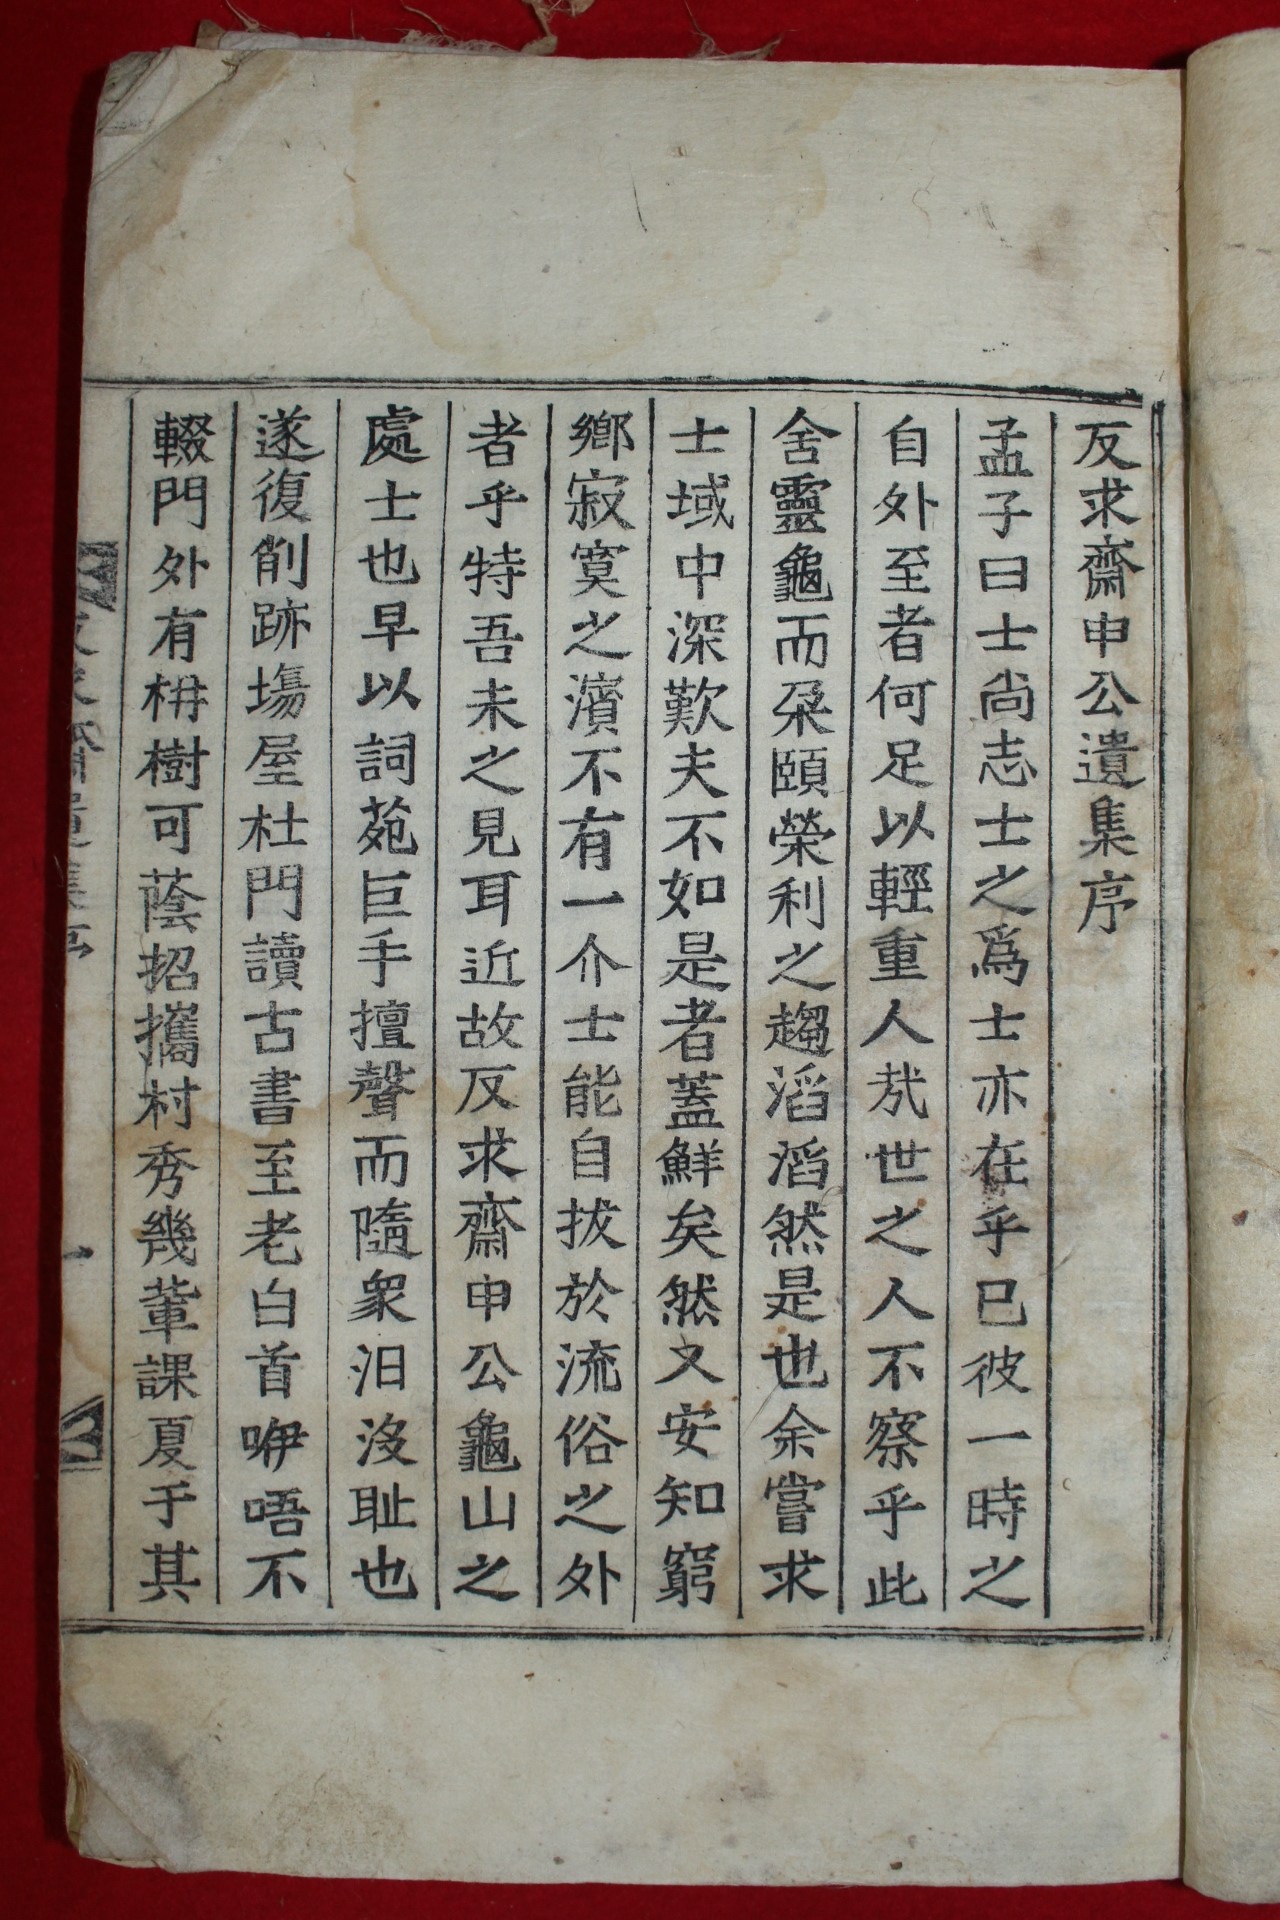 反求齋申公遺集序
孟子曰士尙志士之爲士亦在乎已彼一時之
自外至者何足以輕重人㢤世之人不察乎此
舍靈龜而朶頤榮利之趨滔滔然是也余嘗求
士域中深歎夫不如是者蓋鮮矣然又安知窮
鄕寂寞之濱不有一介士能自拔於流俗之外
者乎特吾未之見耳近故反求齋申公龜山之
處士也早以詞苑巨手擅聲而隨衆汨沒耻也
遂復削跡塲屋杜門讀古書至老白首咿唔不
輟門外有枏樹可蔭招攜村秀幾輩課夏于其
反求齋遺集序
一